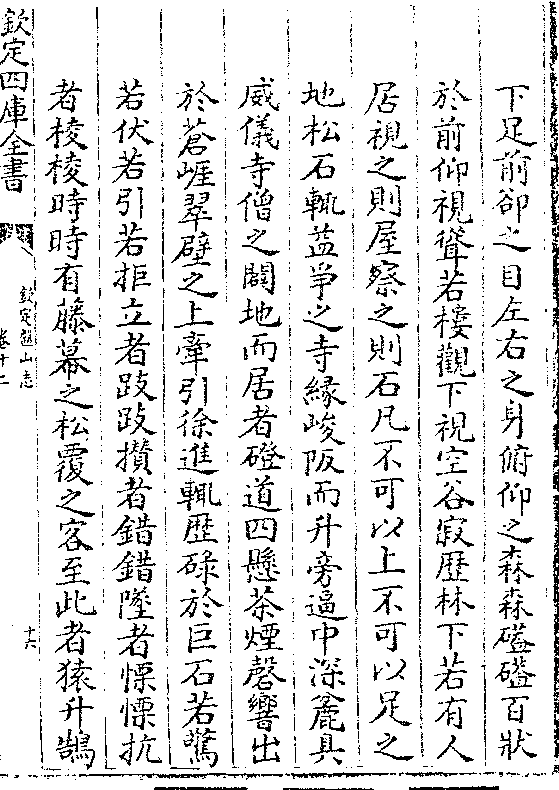 下足前卻之目左右之身俯仰之森森礚礚百狀
於前仰視聳若樓觀下視空谷寂歴林下若有人
居視之則屋察之則石凡不可以上不可以足之
地松石輒葢爭之寺縁峻阪而升旁逼中深麄具
威儀寺僧之闢地而居者磴道四懸茶煙磬響出
於蒼崕翠壁之上牽引徐進輒歴碌於巨石若驚
若伏若引若拒立者跂跂攅者錯錯墜者慄慄抗
者棱棱時時有藤幕之松覆之客至此者猿升鵠
欽定四庫全書
欽定盤山志
卷十二
十六